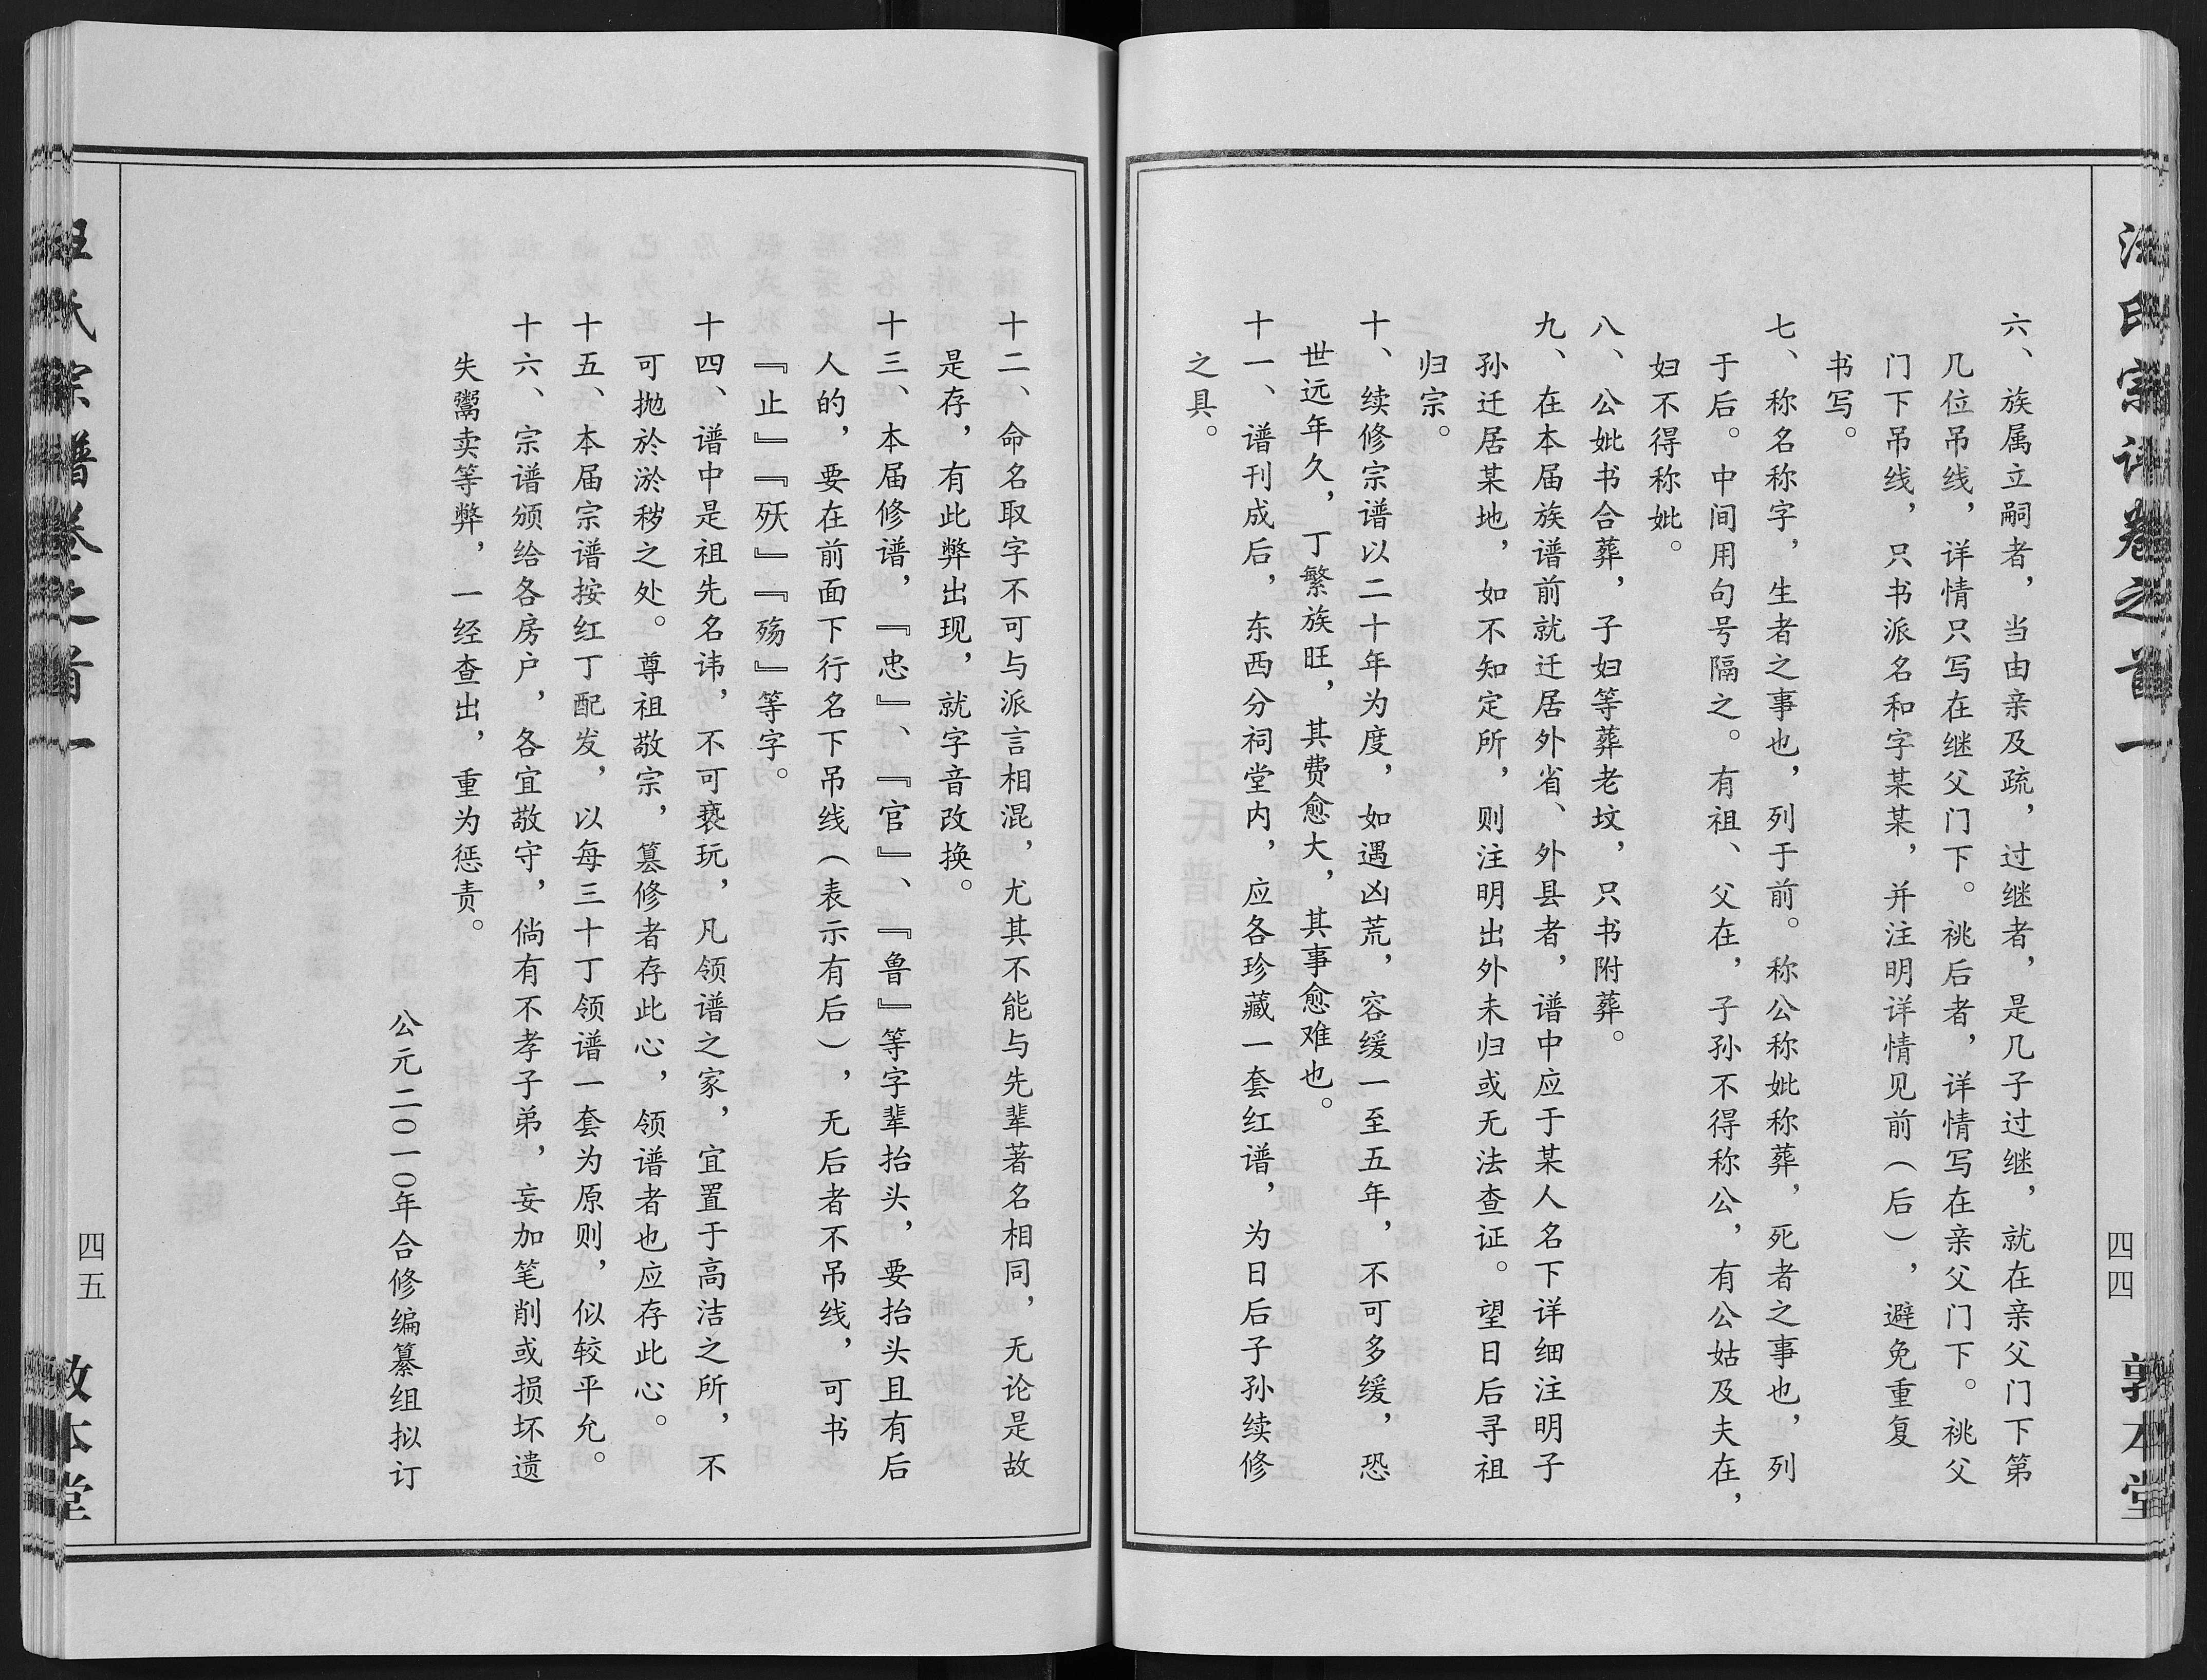 汪氏宗谱卷之首一
四四
敦本堂
六、族属立嗣者，当由亲及疏，过继者，是几子过继，就在亲父门下第
几位吊线，详情只写在继父门下。祧后者，详情写在亲父门下。祧父
门下吊线，只书派名和字某某，并注明详情见前（后），避免重复
书写。
七、称名称字，生者之事也，列于前。称公称妣称葬，死者之事也，列
于后。中间用句号隔之。有祖、父在，子孙不得称公，有公姑及夫在，
妇不得称妣。
八、公妣书合葬，子妇等葬老坟，只书附葬。
九、在本届族谱前就迁居外省、外县者，谱中应于某人名下详细注明子
孙迁居某地，如不知定所，则注明出外未归或无法查证。望日后寻祖
归宗。
十、续修宗谱以二十年为度，如遇凶荒，容缓一至五年，不可多缓，恐
世远年久，丁繁族旺，其费愈大，其事愈难也。
十一、谱刊成后，东西分祠堂内，应各珍藏一套红谱，为日后子孙续修
之具。
十二、命名取字不可与派言相混，尤其不能与先辈著名相同，无论是故
是存，有此弊出现，就字音改换。
十三、本届修谱，『忠』、『官』、『鲁』等字辈抬头，要抬头且有后
人的，要在前面下行名下吊线（表示有后），无后者不吊线，可书
『止』『殀』『殇』等字。
十四、谱中是祖先名讳，不可亵玩，凡领谱之家，宜置于高洁之所，不
可抛於淤秽之处。尊祖敬宗，篡修者存此心，领谱者也应存此心。
十五、本届宗谱按红丁配发，以每三十丁领谱一套为原则，似较平允。
十六、宗谱颁给各房户，各宜敬守，倘有不孝子弟，妄加笔削或损坏遗
失鬻卖等弊，一经查出，重为惩责。
公元二〇一〇年合修编纂组拟订
汪氏宗谱卷之首一
四五
敦本堂